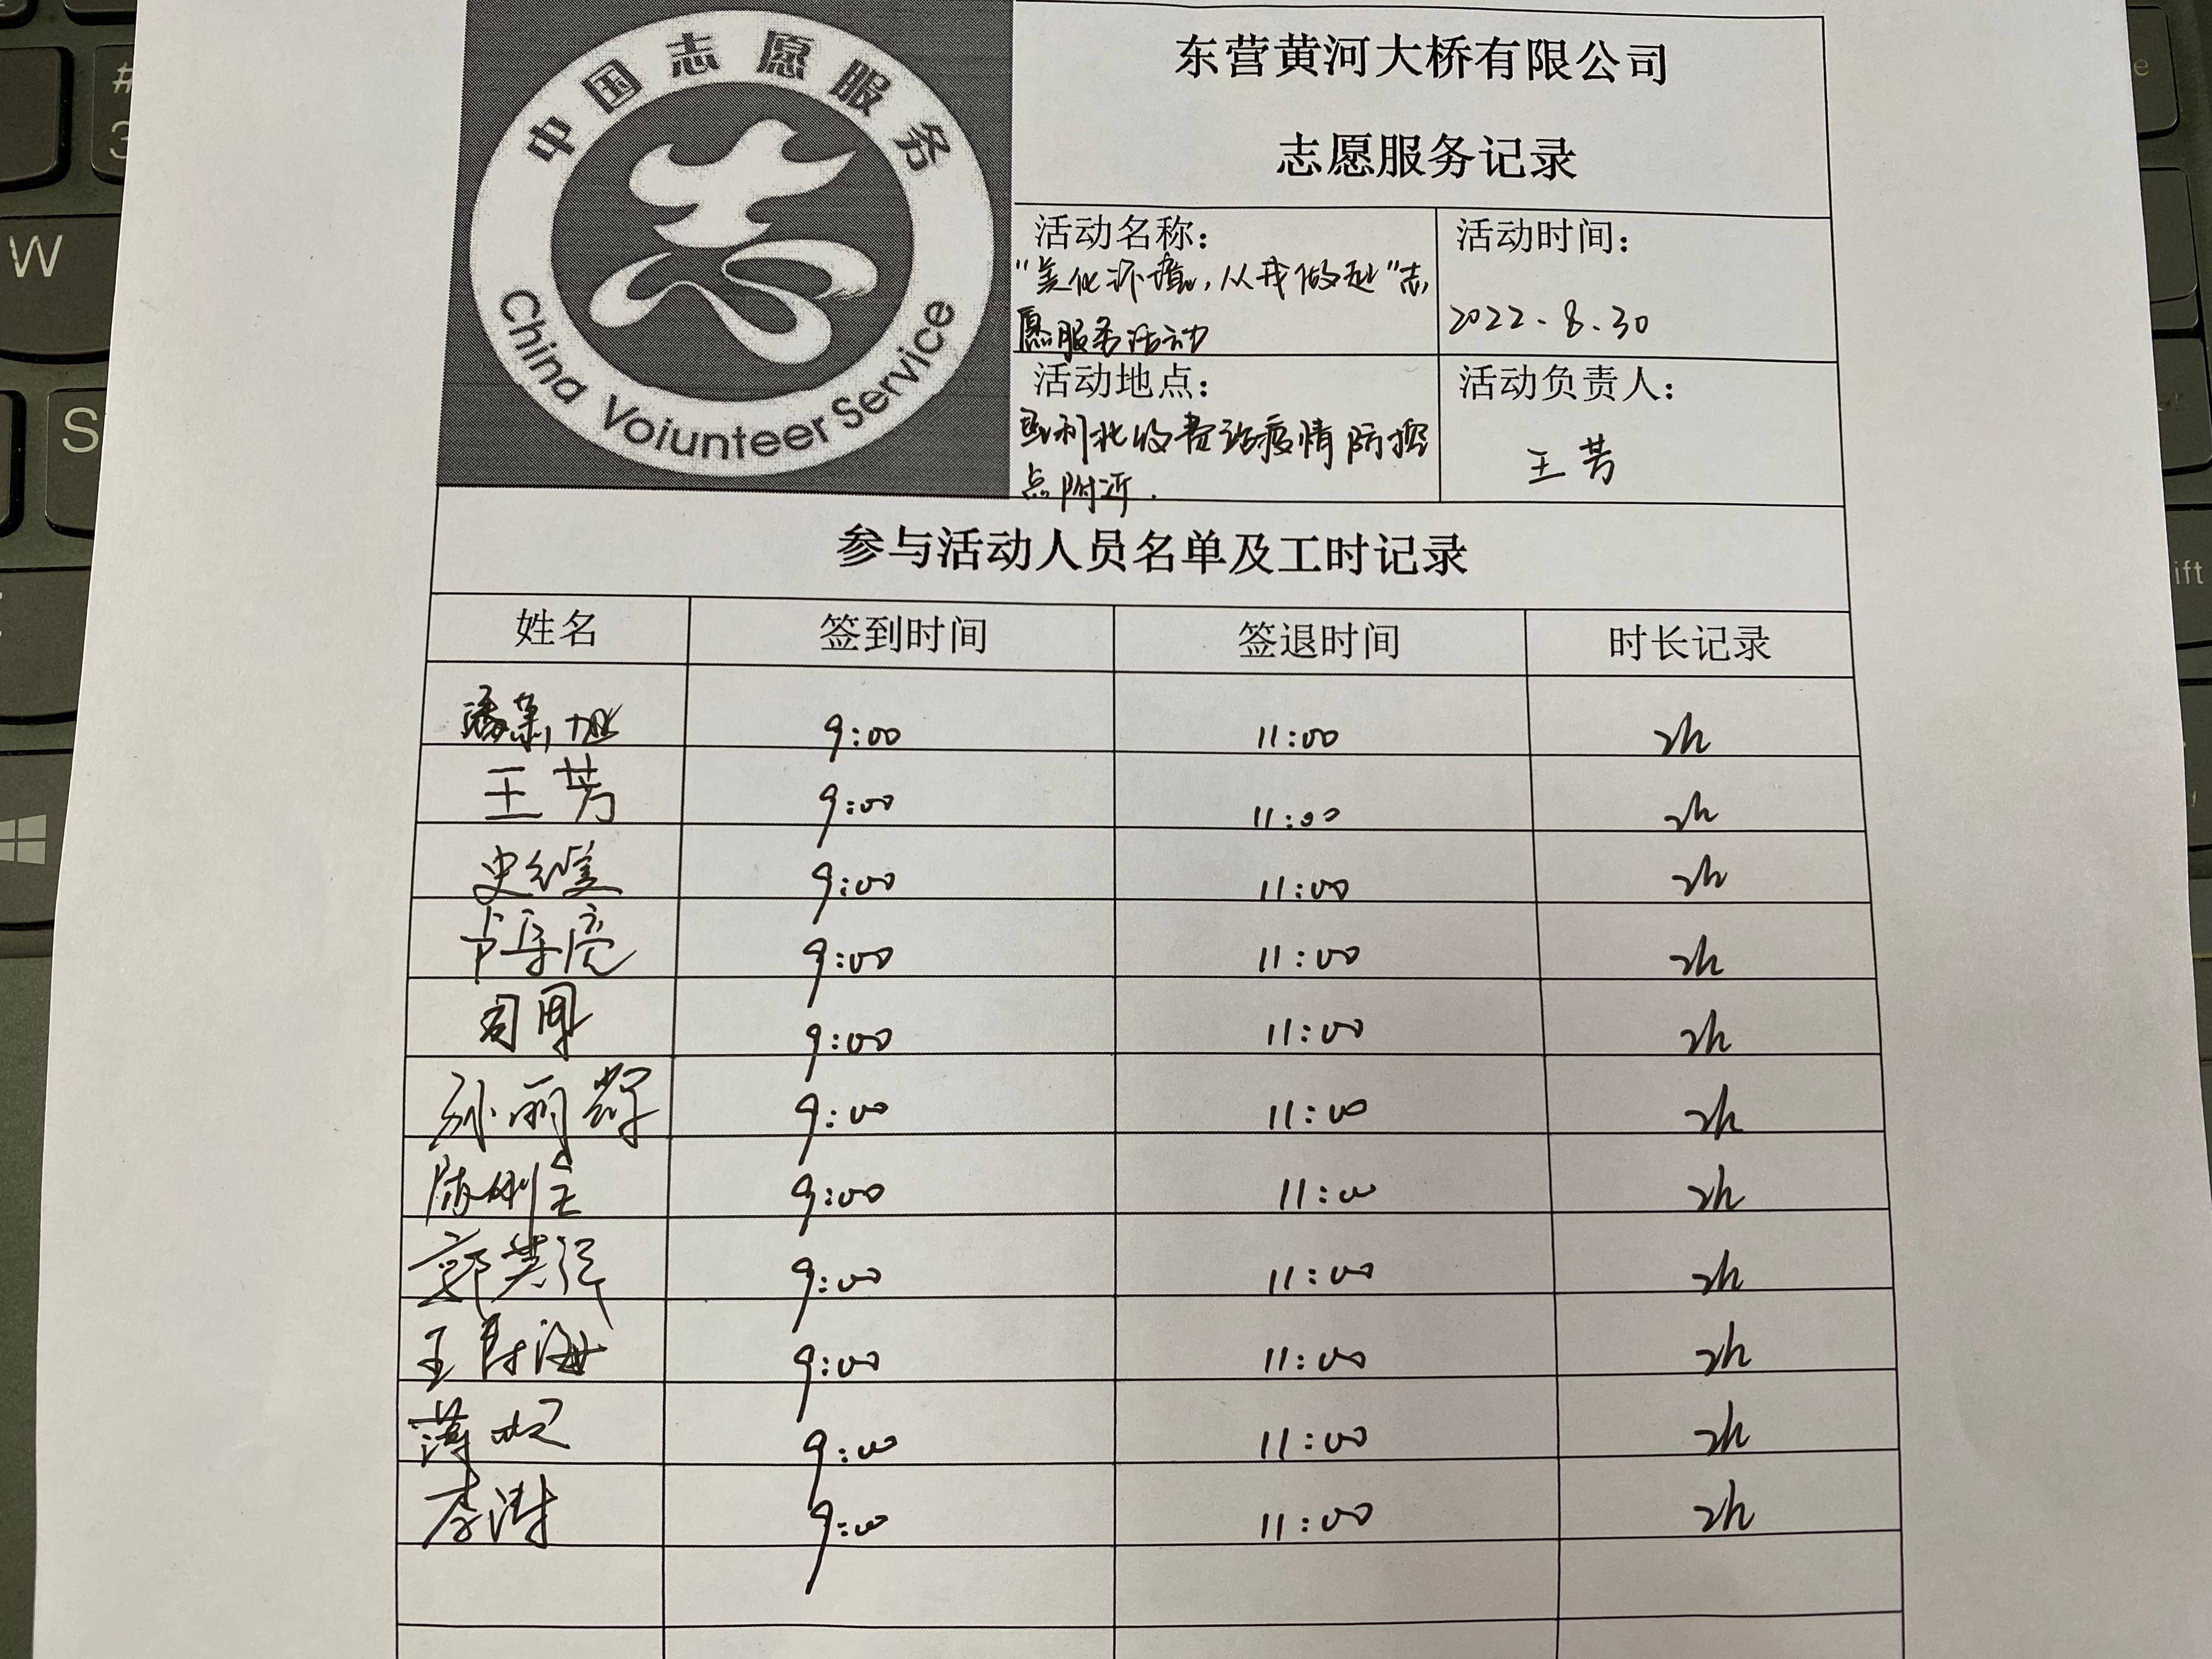 中国志愿服务
China Voiunteer Service
东营黄河大桥有限公司
志愿服务记录
活动名称：
"美化环境，从我做起"志
愿服务活动
活动时间：
2022.8.30
活动地点：
垦利北收费站疫情防控
点附近.
活动负责人：
王芳
参与活动人员名单及工时记录
姓名 签到时间 签退时间 时长记录
9:00 11:00 2h
王芳 9:00 11:00 2h
史继美 9:00 11:00 2h
9:00 11:00 2h
9:00 11:00 2h
孙丽辉 9:00 11:00 2h
9:00 11:00 2h
9:00 11:00 2h
王寿海 9:00 11:00 2h
薄 9:00 11:00 2h
李涛 9:00 11:00 2h
W
#
3